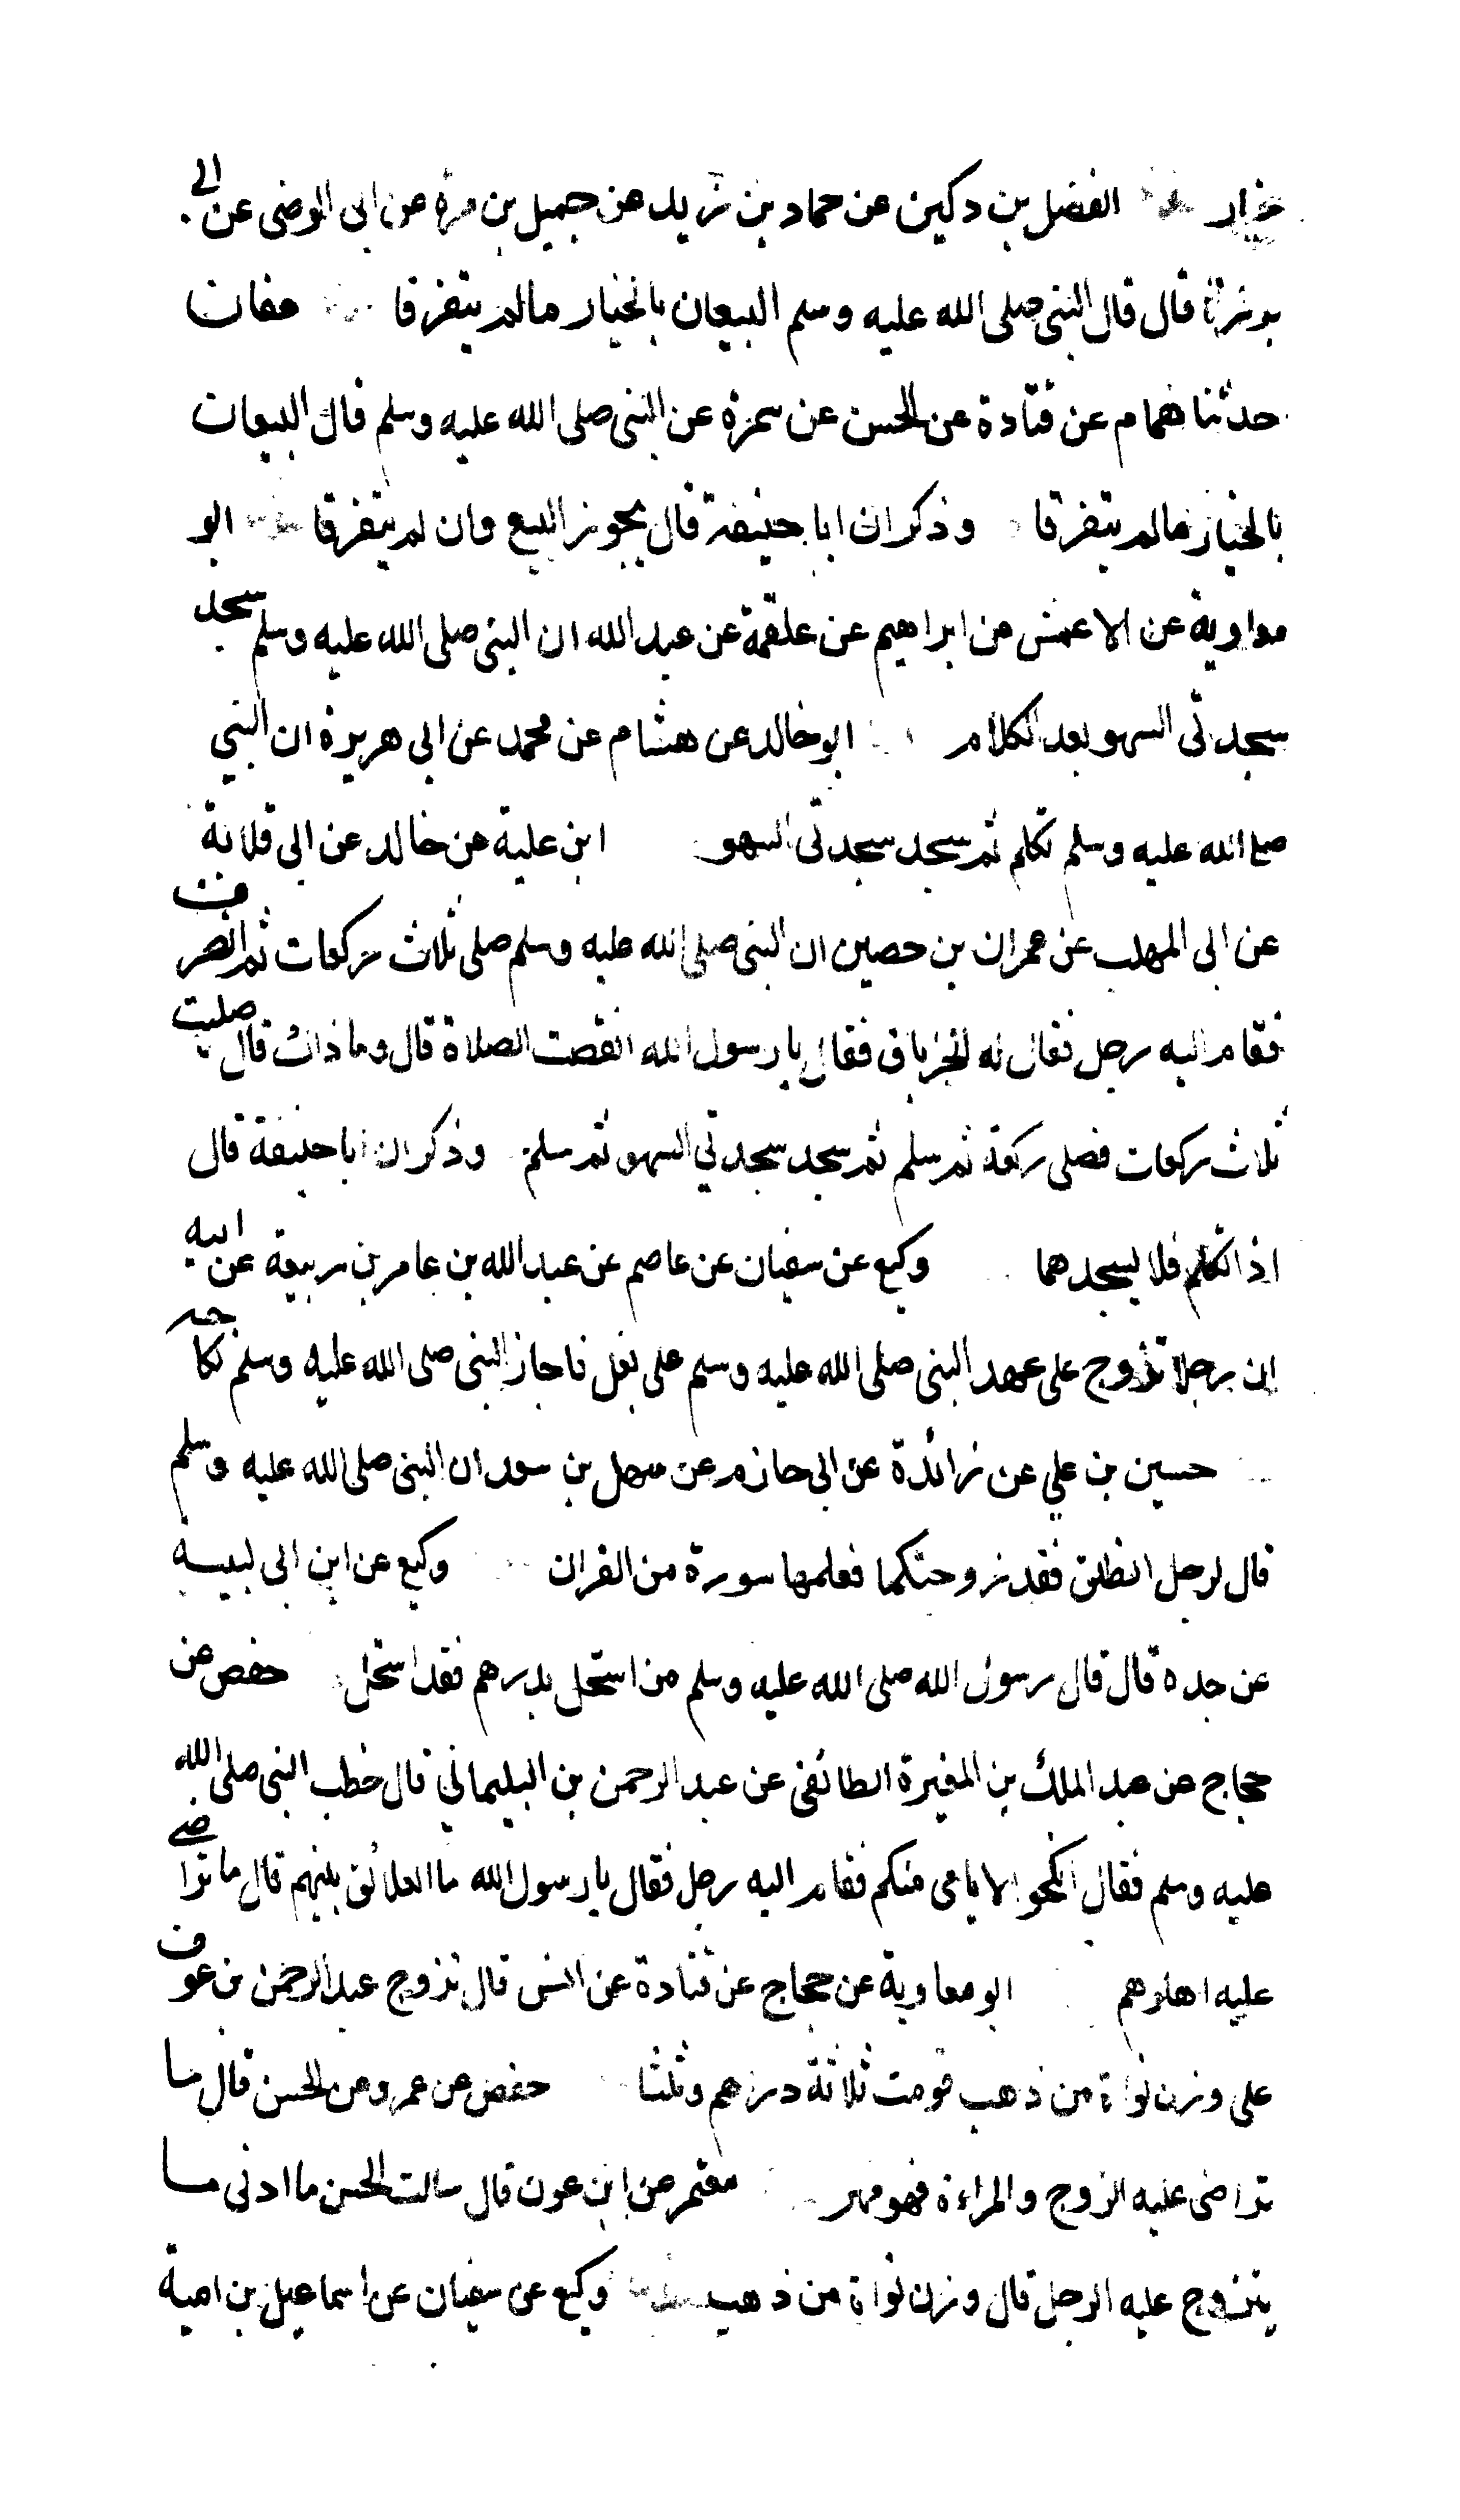 خيار الفضل بن دكين عن حماد بن زيد عن جميل بن مرة عن ابى الوضى عن ابى
برزة قال قال النبى صلى الله عليه وسلم البيعان بالخيار مالم يتفرقا عفان
حدثنا همام عن قتادة عن الحسن عن سمرة عن النبى صلى الله عليه وسلم قال البيعان
بالخيار مالم يتفرقا وذكر ان ابا حنيفة قال يجوز البيع وان لم يتفرقا ابو
معاوية عن الاعمش عن ابراهيم عن علقمة عن عبد الله ان النبى صلى الله عليه وسلم سجد
سجدتى السهو بعد الكلام ابو خالد عن هشام عن محمد عن ابى هريرة ان النبي
صلى الله عليه وسلم تكلم ثم سجد سجدتى السهو ابن علية عن خالد عن ابى قلابة
عن ابى المهلب عن عمران بن حصين ان النبى صلى الله عليه وسلم صلى ثلاث ركعات ثم انصرف
فقام اليه رجل فقال له الخرباق فقال يا رسول الله انقصت الصلاة قال وما ذاك قال صليت
ثلاث ركعات فصلى ركعة ثم سلم ثم سجد سجدتي السهو ثم سلم وذكر ان ابا حنيفة قال
اذا تكلم فلا يسجدهما وكيع عن سفيان عن عاصم عن عبد الله بن عامر بن ربيعة عن ابيه
ان رجلا تزوج على عهد النبى صلى الله عليه وسلم على نعل فاجاز النبى صلى الله عليه وسلم نكاحه
حسين بن علي عن زائدة عن ابى حازم عن سهل بن سعد ان النبى صلى الله عليه وسلم
قال لرجل انطلق فقد زوجتكها فعلمها سورة من القران وكيع عن ابن ابى لبيبة
عن جده قال قال رسول الله صلى الله عليه وسلم من استحل بدرهم فقد استحل حفص عن
حجاج عن عبد الملك بن المغيرة الطائفى عن عبد الرحمن بن البيلماني قال خطب النبى صلى الله
عليه وسلم فقال انكحوا الايامى منكم فقام اليه رجل فقال يا رسول الله ما العلائق بينهم قال ما تراضى
عليه اهلوهم ابو معاوية عن حجاج عن قتادة عن انس قال تزوج عبد الرحمن بن عوف
على وزن نواة من ذهب قومت ثلاثة دراهم وثلثا حفص عن عمرو عن الحسن قال ما
تراضى عليه الزوج والمراءة فهو مهر معتمر عن ابن عون قال سالت الحسن ما ادنى ما
يتزوج عليه الرجل قال وزن نواة من ذهب وكيع عن سفيان عن اسماعيل بن امية